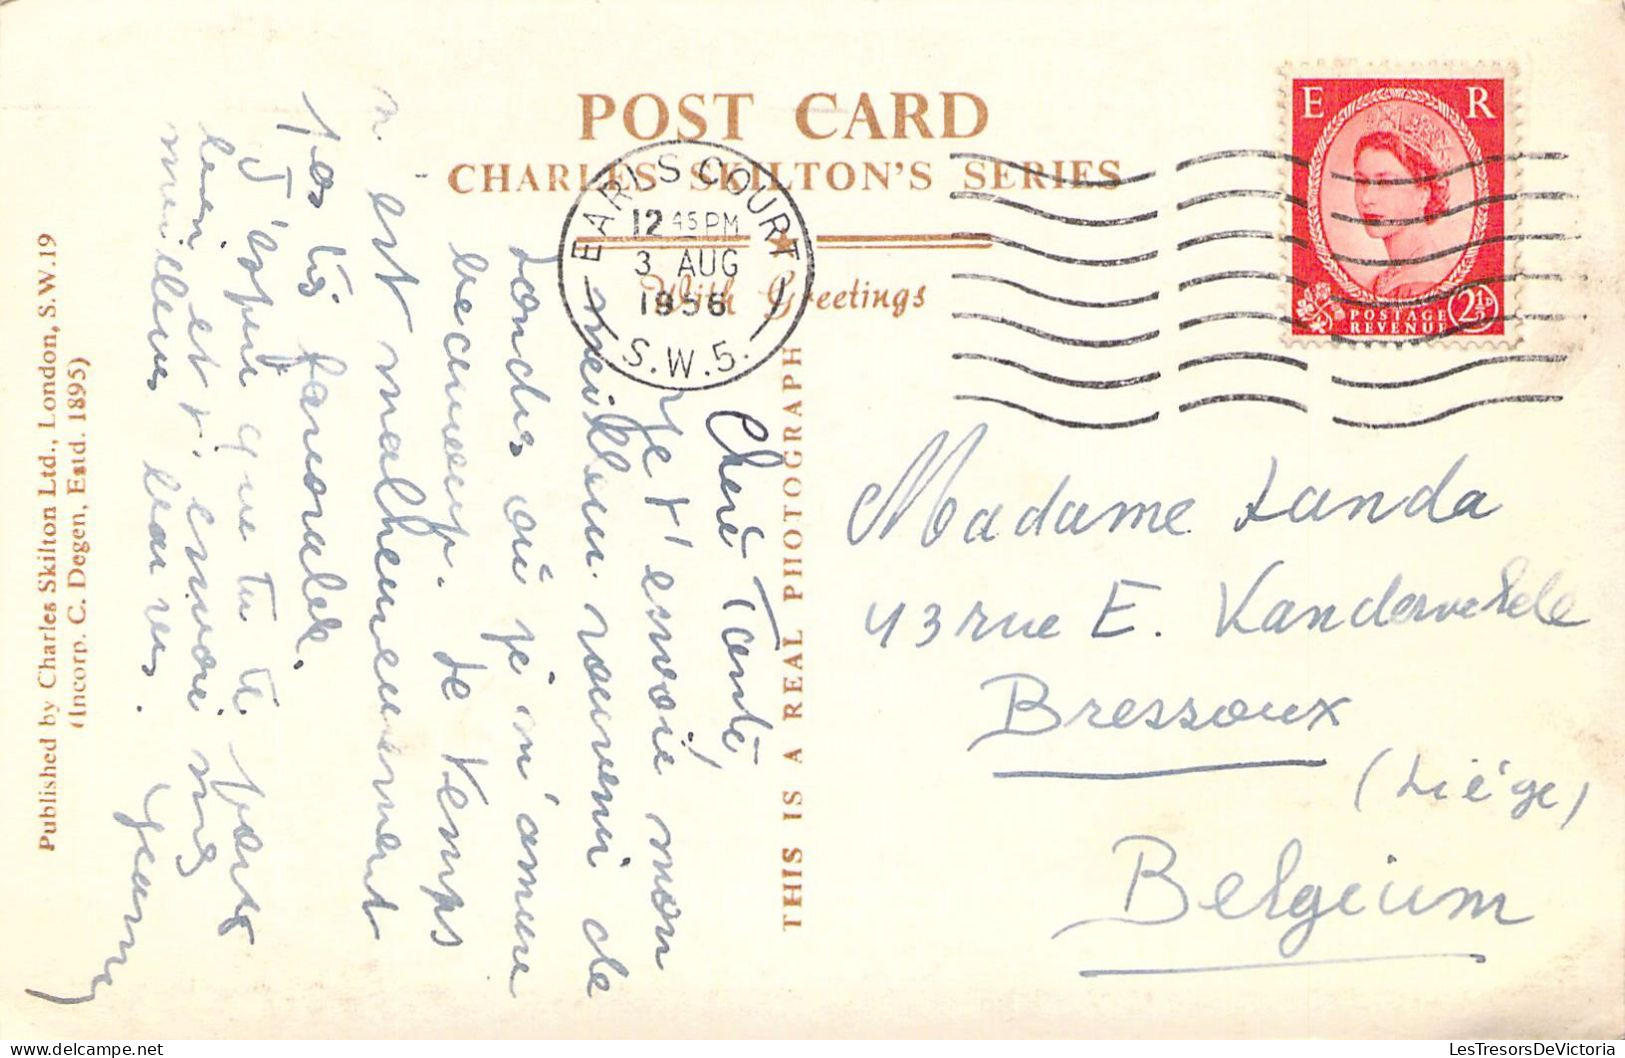 POST CARD
CHARLES SKILTON'S SERIES
With Greetings
EARLS COURT
12 45 PM
3 AUG
1956
S.W.5.
E R
POSTAGE
REVENUE
2½D
THIS IS A REAL PHOTOGRAPH
Published by Charles Skilton Ltd., London, S.W.19
(Incorp. C. Degen, Estd. 1895)
Chère Tante,
Je t'envoie mon
meilleur souvenir de
Londres où je m'amuse
beaucoup. Le temps
n'est malheureusement
pas très favorable.
J'espère que tu te portes
bien et t'envoie mes
meilleurs
Madame Landa
43 rue E. Vandervelde
Bressoux
(Liége)
Belgium
LesTresorsDeVictoria